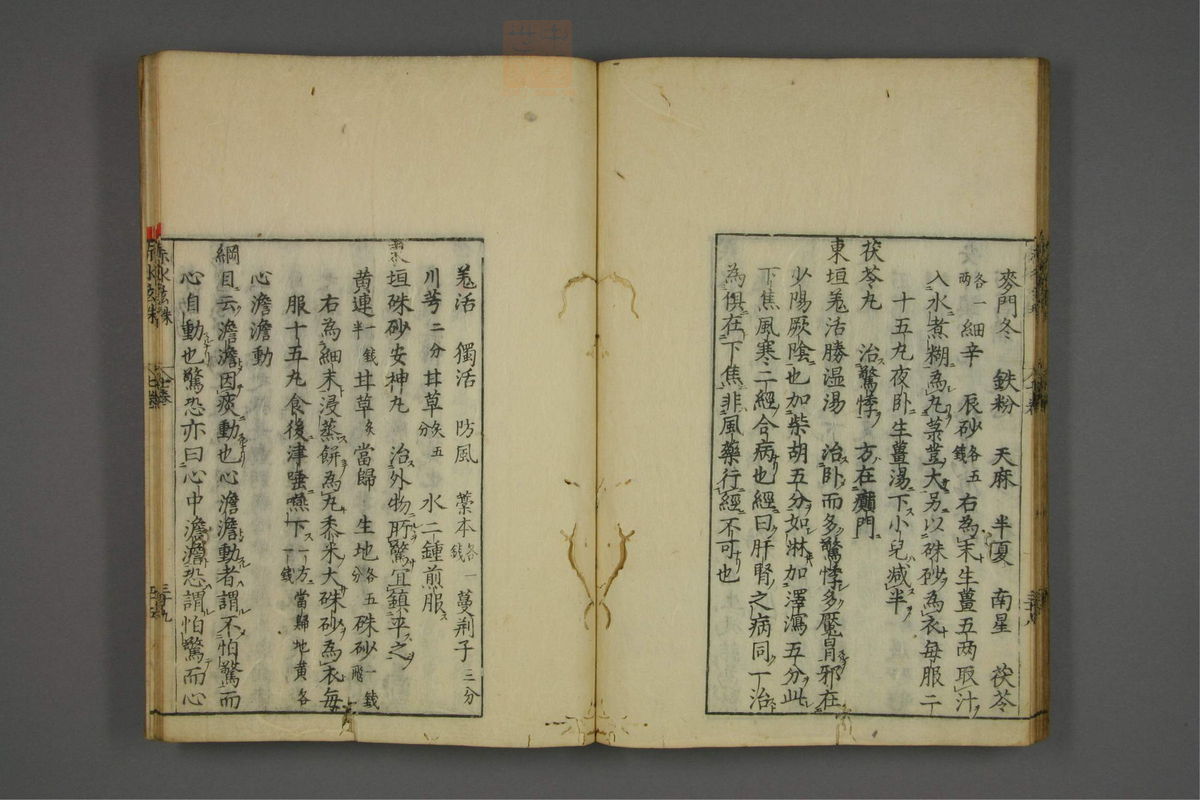 麥門冬 鉄粉 天麻 半夏 南星 茯苓
各一两 細辛 辰砂各五錢 右為末生薑五两取汁
入水煮糊為丸菉荳大另以硃砂為衣每服二
十五丸夜卧生薑湯下小兒减半
茯苓丸 治驚悸 方在癎門
東垣羗活勝湿湯 治卧而多驚悸多魘冒邪在
少陽厥陰也加柴胡五分如淋加澤瀉五分此
下焦風寒二經合病也經曰肝腎之病同一治
為俱在下焦非風藥行經不可也
羗活 獨活 防風 藁本各一錢 蔓荊子三分
川芎二分 甘草炙五分 水二鍾煎服
垣硃砂安神丸 治外物所驚宜鎮平之
黄連一錢半 甘草炙 當歸 生地各五分 硃砂一錢飛
右為細末浸蒸餅為丸黍米大硃砂為衣每
服十五丸食後津唾嚥下一方當歸地黄各一錢
心澹澹動
綱目云澹澹因痰動也心澹澹動者謂不怕驚而
心自動也驚恐亦曰心中澹澹恐謂怕驚而心
赤水玄珠